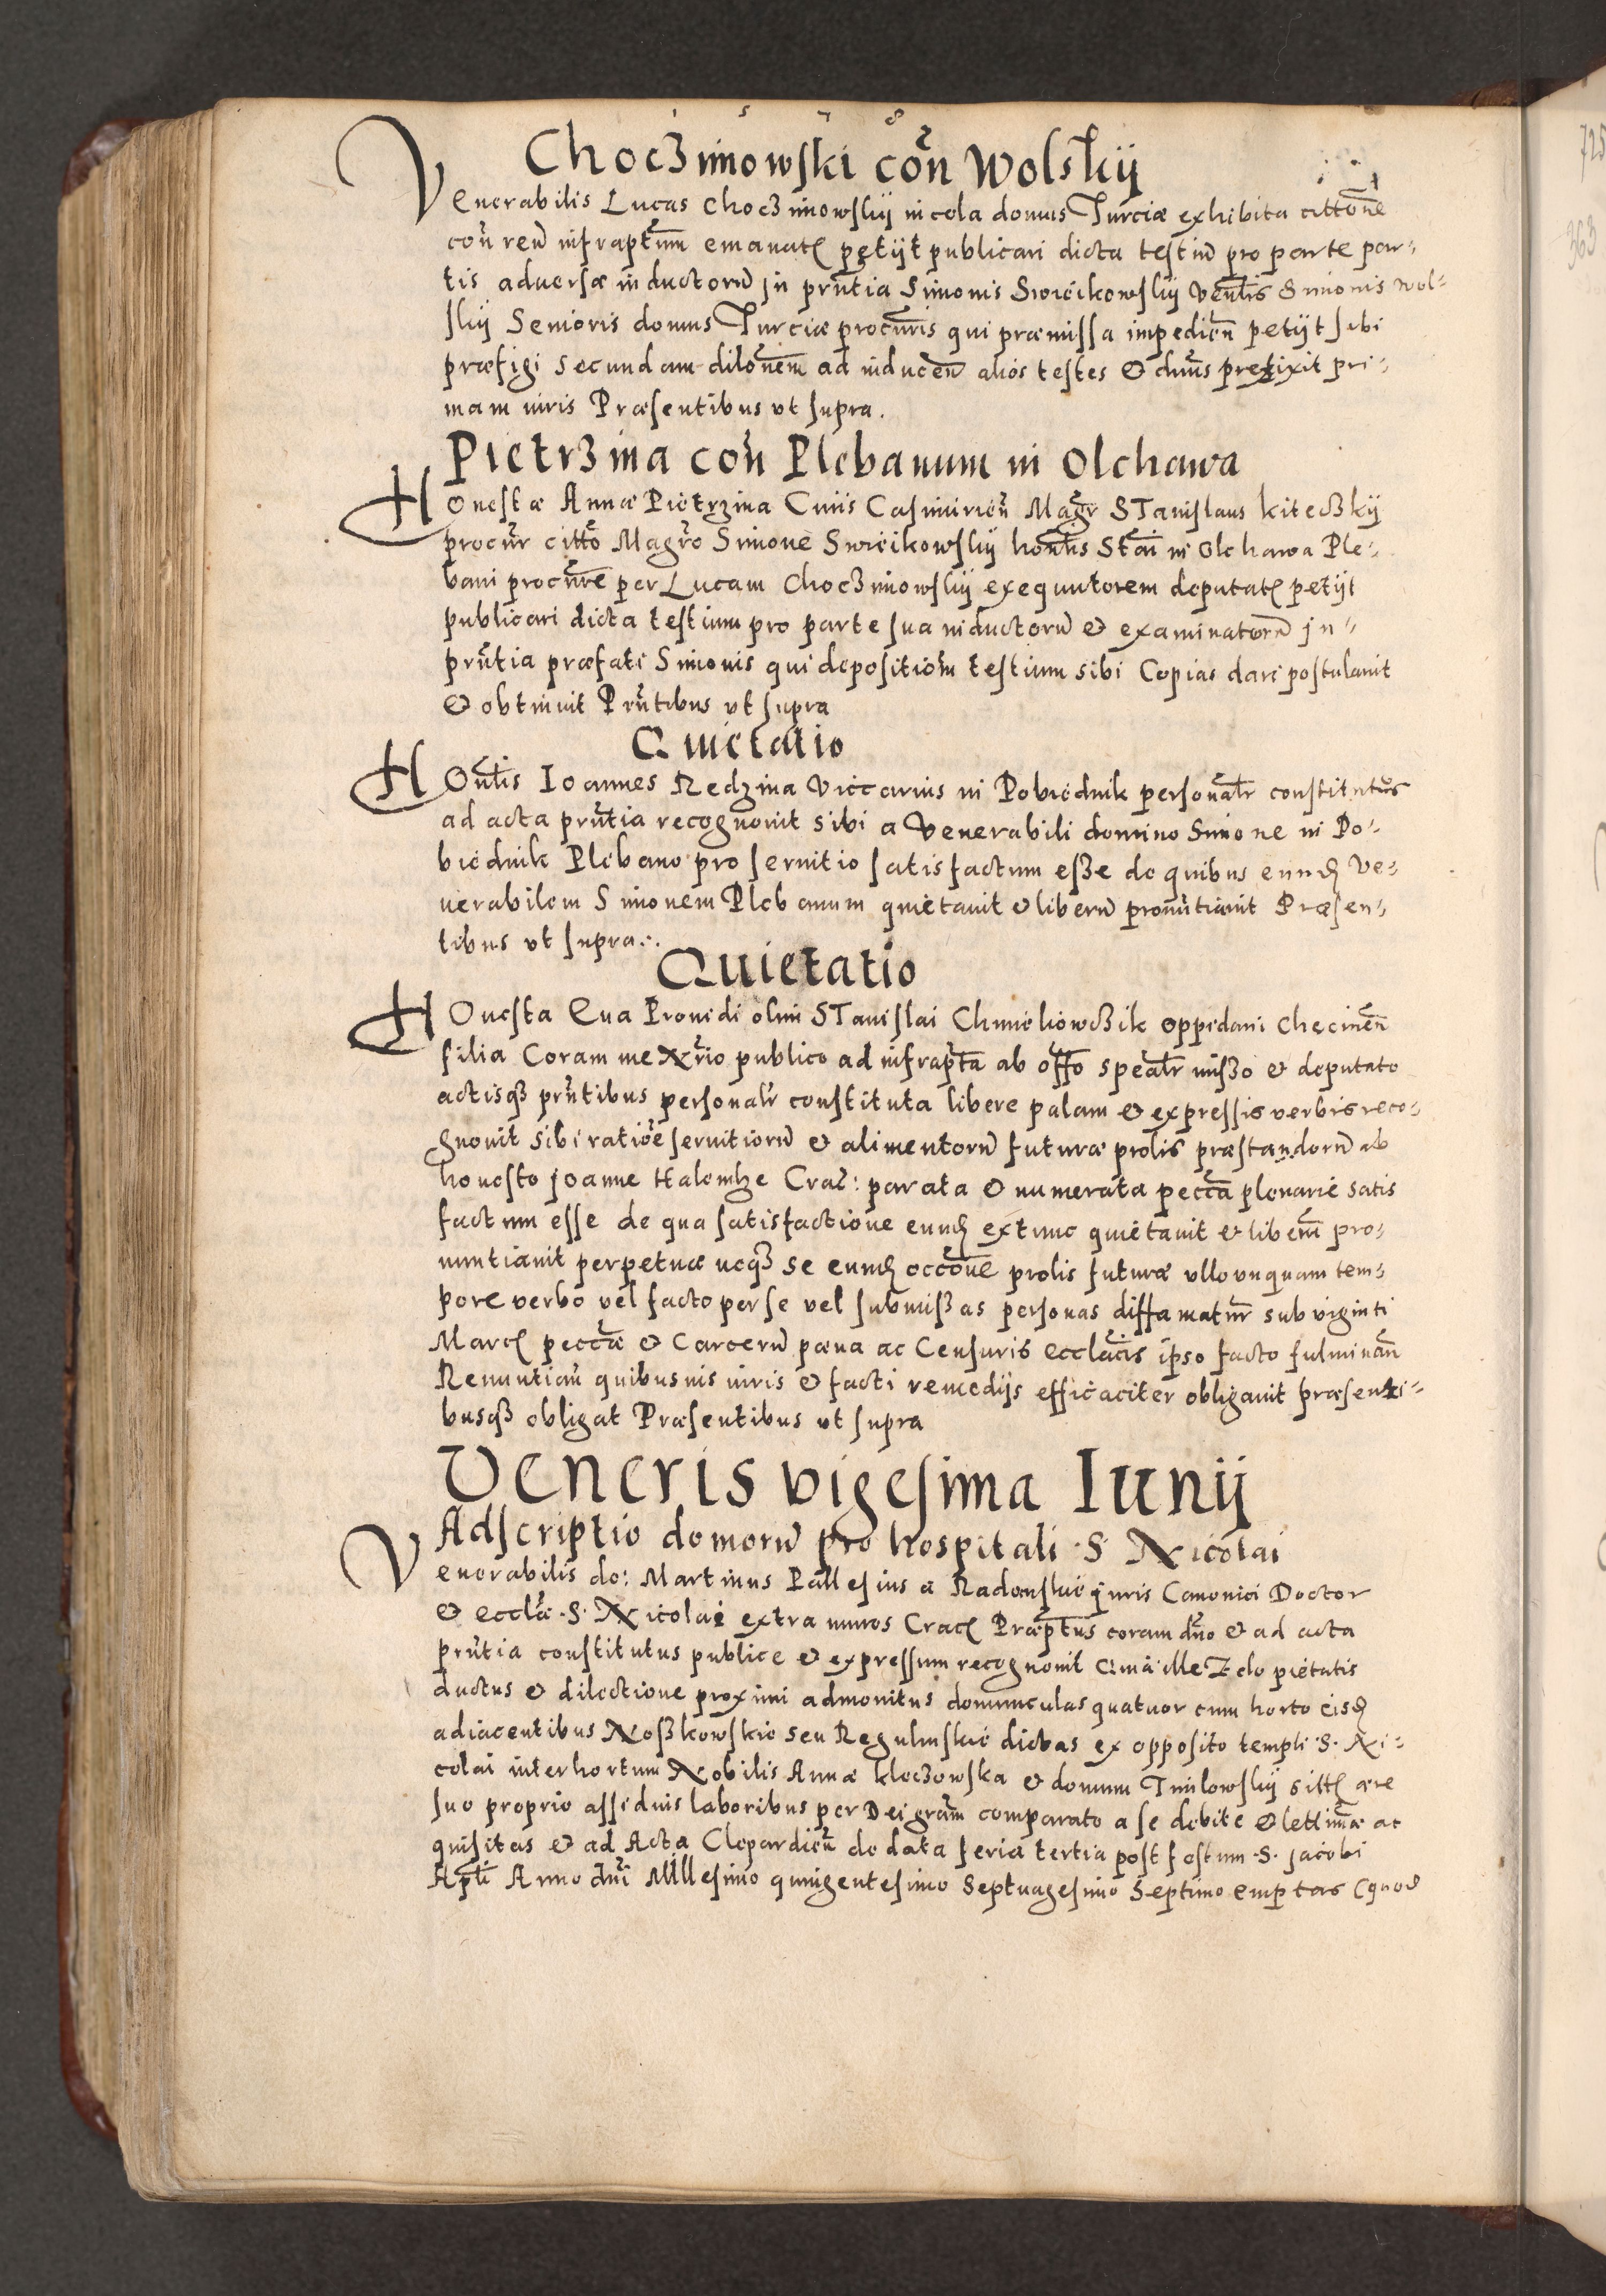 1 5 7 8
Choczimowski coñ Wolskij
Venerabilis Lucas Choczimowskij incola domus Turciæ exhibita cittone
coñ reũ infraptum emanat petijt publicari dicta testiũ pro parte par-
tis adversæ inductorũ jn prñtia Simonis Swieikowskij Venlis Simonis Wol-
skij Senioris domus Turciæ procuris qui præmissa impedieñ petijt sibi
præfigi secundam dilonem ad inducen alios testes & dnus prefixit pri-
mam iuris Præsentibus vt supra.
Pietrzina coñ Plebanum in Olchawa
Honestæ Annæ Pietrzina Ciuis Casimirieñ Magr STanislaus kiteczkij
procur citto Magro Simone Swieikowskij honlis Stai in Olchawa Ple-
bani procure per Lucam Choczimowskij exequutorem deputat petijt
publicari dicta testium pro parte sua inductorũ & examinatorũ jn-
prñtia præfati Simonis qui depositiom testium sibi Copias dari postulauit
& obtinuit Prñtibus vt supra
Quietatio
Honlis Ioannes Redzina Viccarius in Pobiednik personalr constitutus
ad acta prñtia recognouit sibi a Venerabili domino Simone in Po-
biednik Plebano pro seruitio satisfactum esse de quibus eund Ve-
nerabilem Simonem Plebanum quietauit & liberũ pronũtiauit Præsen-
tibus vt supra...
Quietatio
Honesta Eua Prouidi olim STanislai Chmielowczik oppidani Checineñ
filia Coram me Nrio publico ad infrapta ab offo spealr misso & deputato
actisq prñtibus personalr constituta libere palam & expressis verbis reco-
gnouit sibi ratioe seruitiorũ & alimentorũ futuræ prolis præstandorũ ab
honesto joanne Cra: parata & numerata peccã plenarie satis
factum esse de qua satisfactione eund extunc quietauit & liberũ pro-
nuntiauit perpetuæ neq se eund occone prolis futuræ vllo vnquam tem-
pore verbo vel facto per se vel submissas personas diffamatur sub viginti
Marc peccæ & Carcerũ pæna ac Censuris ecclacis ipso facto fulminañ
Renuntiañ quibusuis iuris & facti remedijs efficaciter obligauit præsenti-
busq obligat Præsentibus vt supra
Veneris vigesima Iunij
Adscriptio domorũ pro hospitali .S. Nicolai
Venerabilis do: Martinus Pallesius a Radomskie juris Canonici Doctor
& ecclæ .S. Nicolai extra muros Crac Præptus coram dño & ad acta
prñtia constitutus publice & expressum recognouit Quia ille Zelo pietatis
ductus & dilectione proximi admonitus domunculas quatuor cum horto eisd
adiacentibus Noskowskie seu Regulinskie dictas ex opposito templi .S. Ni-
colai inter hortum Nobilis Annæ kloczowska & domum Tmilowskij sitt ære
suo proprio assiduis laboribus per Dei gram comparato a se debite & lettimæ ac
quisitas & ad Acta Clepardieñ de data feria tertia post festum .S. jacobi
Apli Anno dni Millesimo quingentesimo Septuagesimo Septimo emptas (quod
725
363